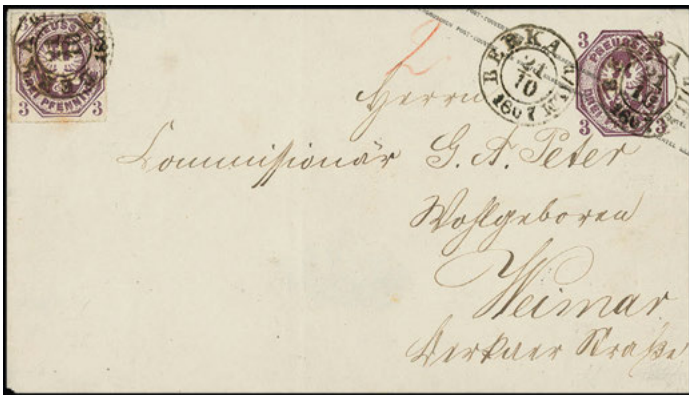 PREUSSEN
3 3
DREI PFENNINGE
2
BERKA a/ILM
21
10
1867
PREUSSEN
3 3
DREI
Herrn
Commissionär G. A. Peter
Wohlgeboren
Weimar
Berkaer Straße